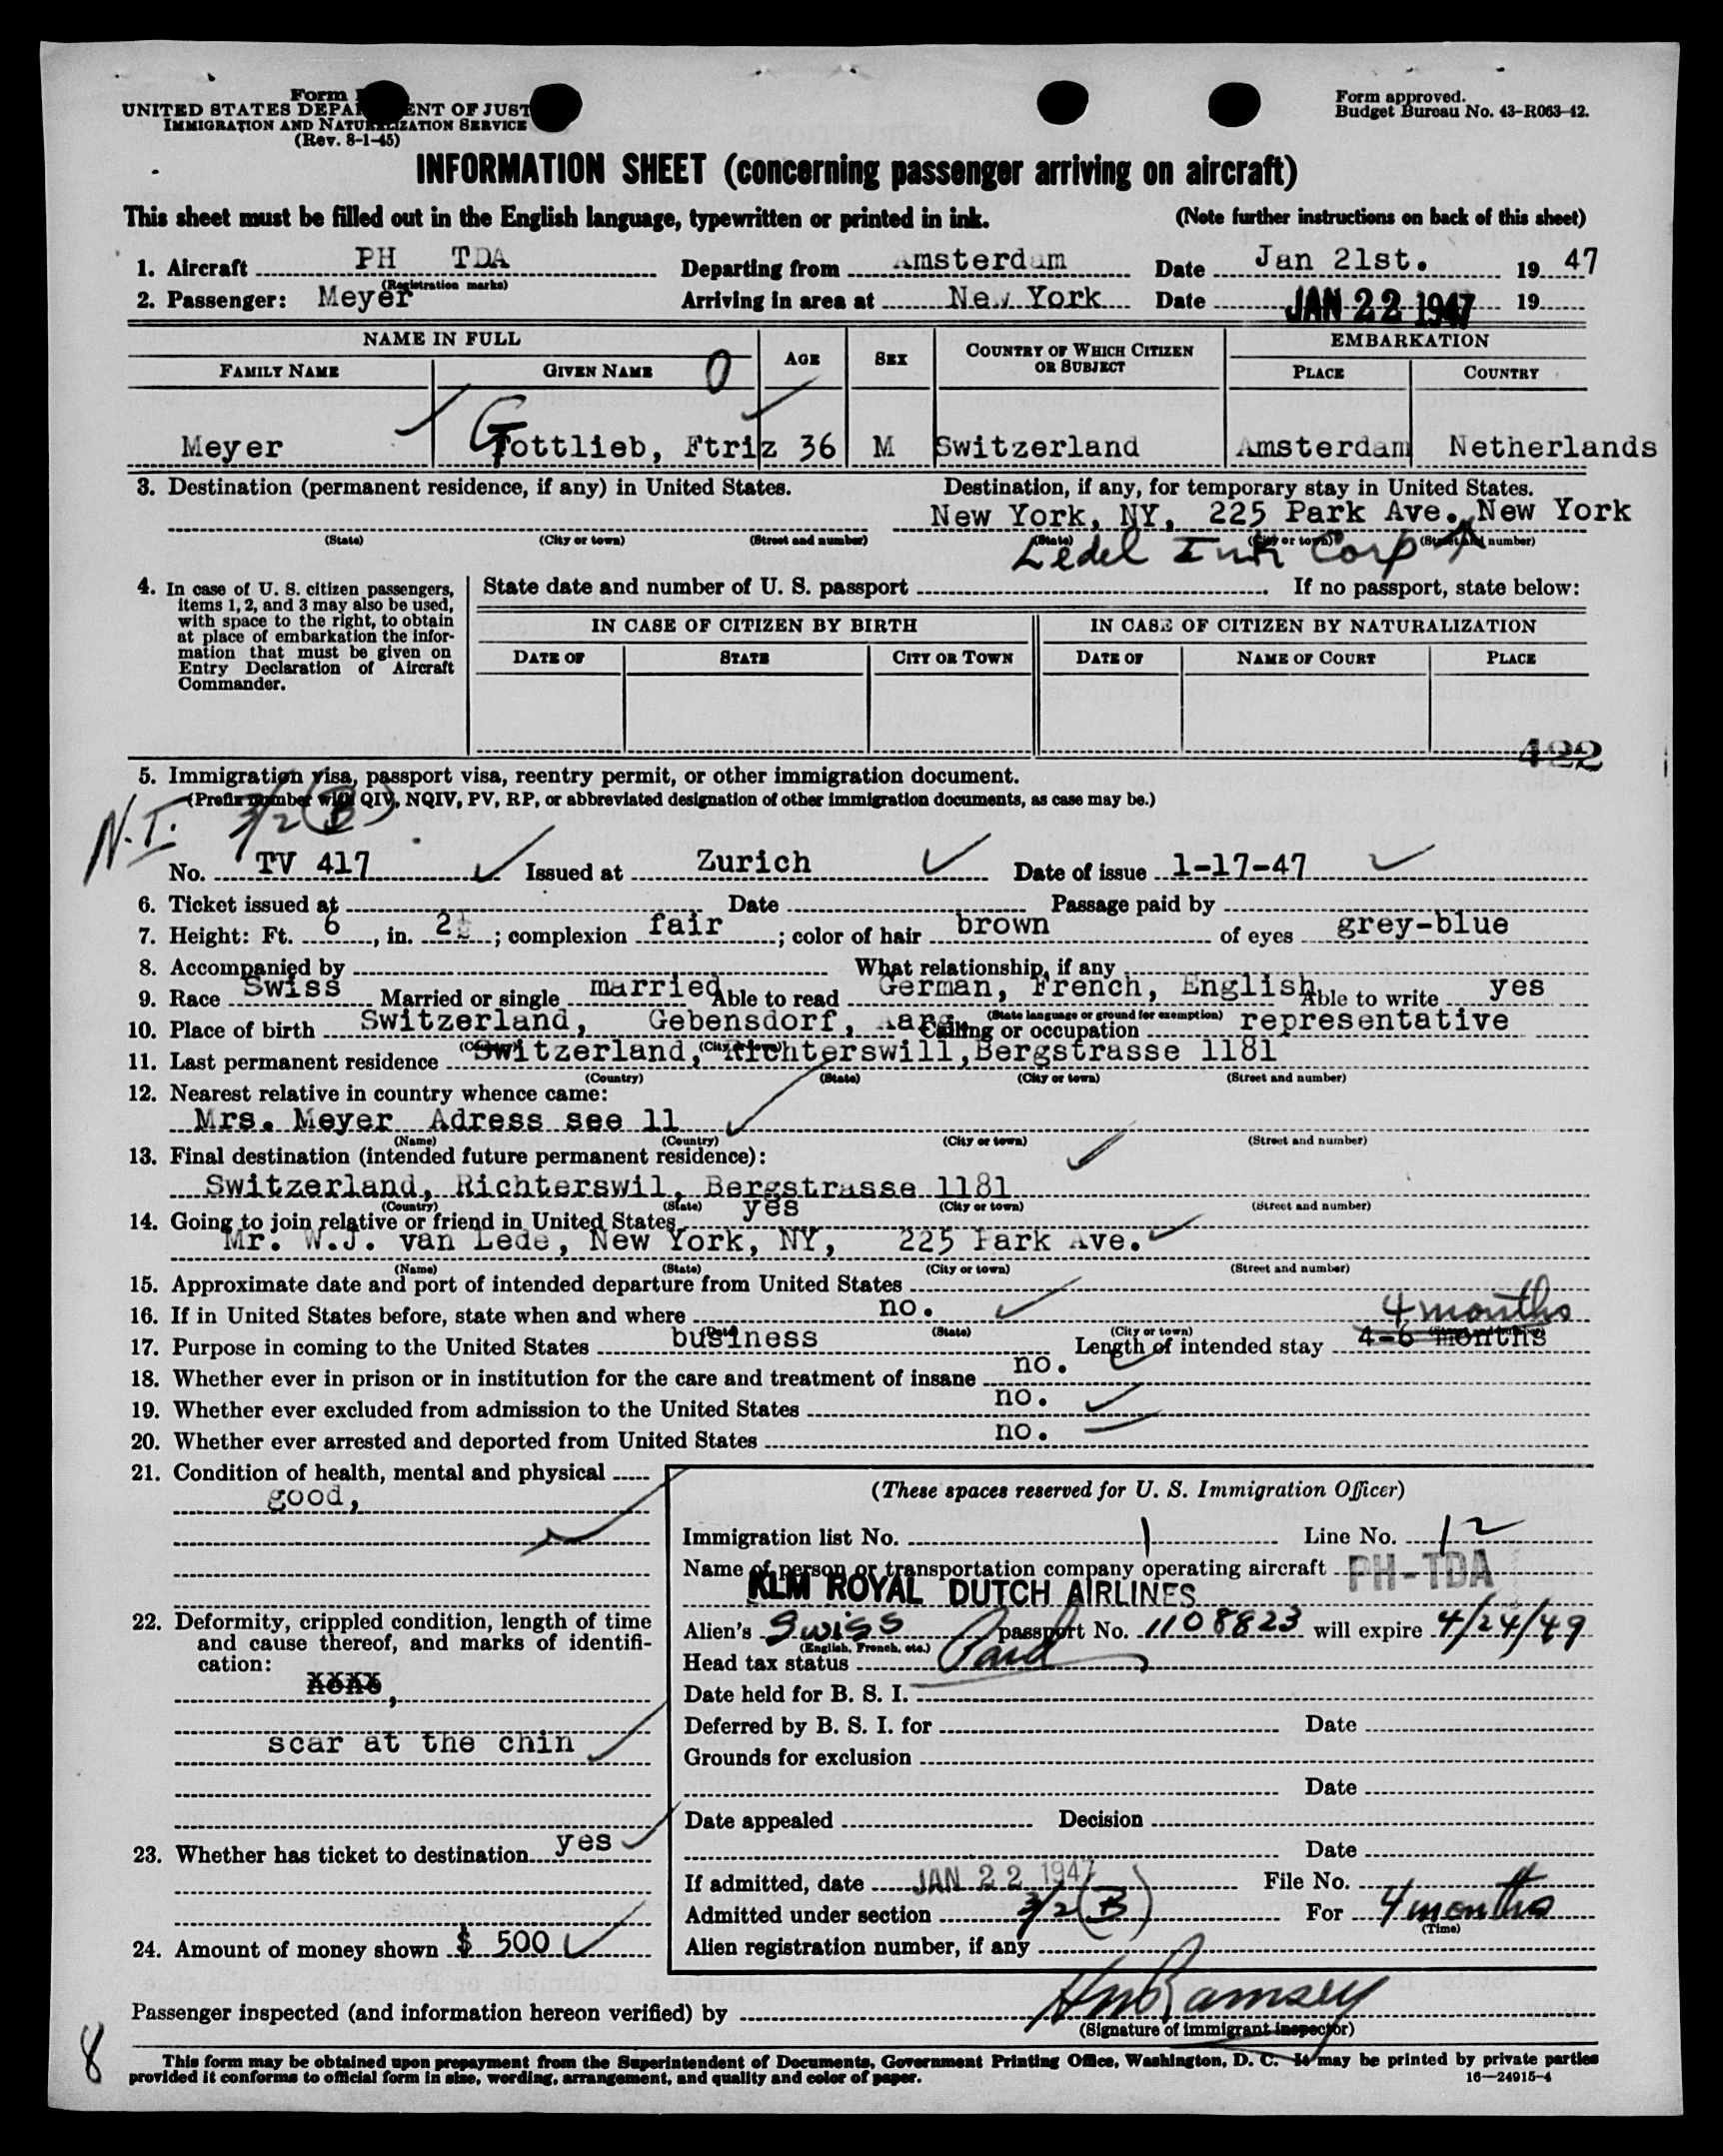 Form
UNITED STATES DEPA ENT OF JUST
IMMIGRATION AND NATURALIZATION SERVICE
(Rev. 8-1-45)
Form approved.
Budget Bureau No. 43-R063-42.
INFORMATION SHEET (concerning passenger arriving on aircraft)
This sheet must be filled out in the English language, typewritten or printed in ink. (Note further instructions on back of this sheet)
1. Aircraft PH TDA Departing from Amsterdam Date Jan 21st. 1947
(Registration marks)
2. Passenger: Meyer Arriving in area at New York Date JAN 22 1947 19
NAME IN FULL AGE SEX COUNTRY OF WHICH CITIZEN OR SUBJECT EMBARKATION
FAMILY NAME GIVEN NAME O PLACE COUNTRY
Meyer Gottlieb, Ftriz 36 M Switzerland Amsterdam Netherlands
3. Destination (permanent residence, if any) in United States. Destination, if any, for temporary stay in United States.
New York, NY, 225 Park Ave. New York
(State) (City or town) (Street and number) (State) (City or town) (Street and number)
Ledel Corp
4. In case of U. S. citizen passengers, items 1, 2, and 3 may also be used, with space to the right, to obtain at place of embarkation the information that must be given on Entry Declaration of Aircraft Commander.
State date and number of U. S. passport If no passport, state below:
IN CASE OF CITIZEN BY BIRTH IN CASE OF CITIZEN BY NATURALIZATION
DATE OF STATE CITY OR TOWN DATE OF NAME OF COURT PLACE
422
5. Immigration visa, passport visa, reentry permit, or other immigration document.
(Prefix number with QIV, NQIV, PV, RP, or abbreviated designation of other immigration documents, as case may be.)
N.I. 3/2 (B)
No. TV 417 Issued at Zurich Date of issue 1-17-47
6. Ticket issued at Date Passage paid by
7. Height: Ft. 6, in. 2½; complexion fair; color of hair brown of eyes grey-blue
8. Accompanied by What relationship, if any
9. Race Swiss Married or single married Able to read German, French, English Able to write yes
(State language or ground for exemption)
10. Place of birth Switzerland, Gebensdorf, Aarg. Calling or occupation representative
(Country) (City or town)
11. Last permanent residence Switzerland, Richterswill, Bergstrasse 1181
(Country) (State) (City or town) (Street and number)
12. Nearest relative in country whence came:
Mrs. Meyer Adress see 11
(Name) (Country) (City or town) (Street and number)
13. Final destination (intended future permanent residence):
Switzerland, Richterswil, Bergstrasse 1181
(Country) (State) (City or town) (Street and number)
14. Going to join relative or friend in United States yes
Mr. W.J. van Lede, New York, NY, 225 Park Ave.
(Name) (State) (City or town) (Street and number)
15. Approximate date and port of intended departure from United States
16. If in United States before, state when and where no. 4 months
(Date) (State) (City or town) (Street and number)
17. Purpose in coming to the United States business Length of intended stay 4-6 months
18. Whether ever in prison or in institution for the care and treatment of insane no.
19. Whether ever excluded from admission to the United States no.
20. Whether ever arrested and deported from United States no.
21. Condition of health, mental and physical
good,
22. Deformity, crippled condition, length of time and cause thereof, and marks of identification:
xxxx,
scar at the chin
23. Whether has ticket to destination yes
24. Amount of money shown $ 500
(These spaces reserved for U. S. Immigration Officer)
Immigration list No. 1 Line No. 12
Name of person or transportation company operating aircraft PH-TDA
KLM ROYAL DUTCH AIRLINES
Alien's Swiss passport No. 1108823 will expire 4/24/49
(English, French, etc.)
Head tax status Paid
Date held for B. S. I.
Deferred by B. S. I. for Date
Grounds for exclusion
Date
Date appealed Decision
Date
If admitted, date JAN 22 1947 File No.
Admitted under section 3/2 (B) For 4 months
(Time)
Alien registration number, if any
Passenger inspected (and information hereon verified) by HmRamsey
(Signature of immigrant inspector)
8
This form may be obtained upon prepayment from the Superintendent of Documents, Government Printing Office, Washington, D. C. It may be printed by private parties
provided it conforms to official form in size, wording, arrangement, and quality and color of paper. 16—24915-4